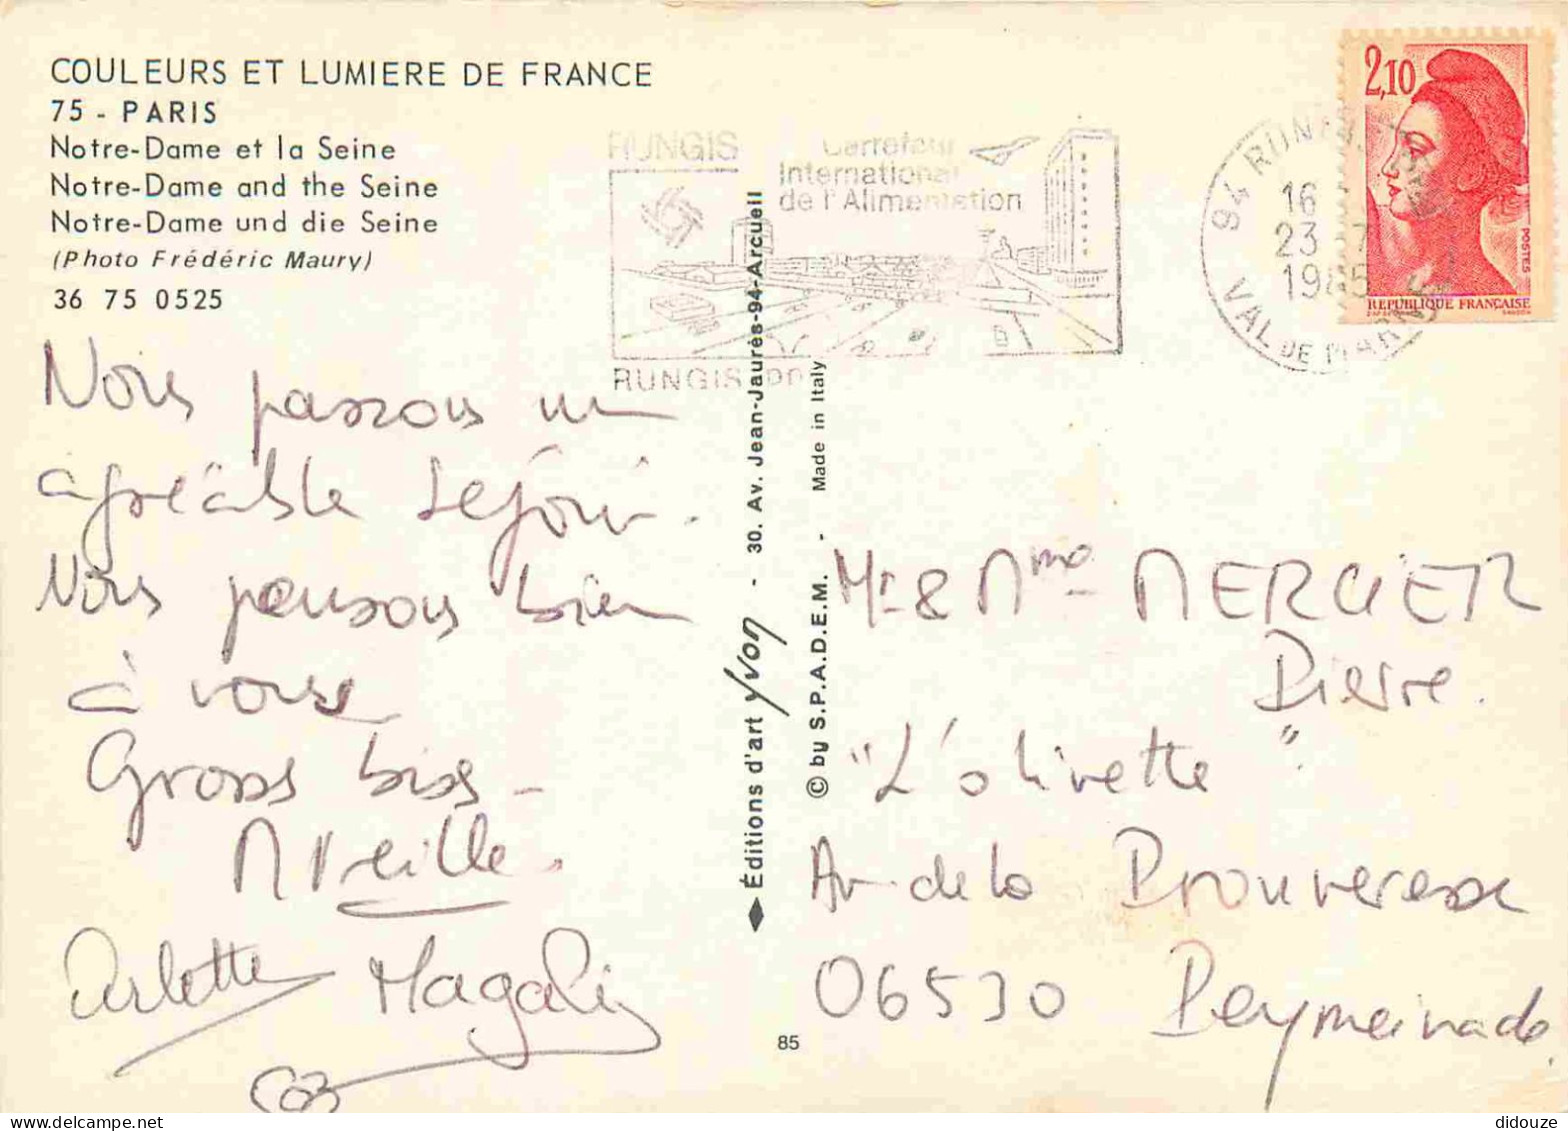 COULEURS ET LUMIERE DE FRANCE
75 - PARIS
Notre-Dame et la Seine
Notre-Dame and the Seine
Notre-Dame und die Seine
(Photo Frédéric Maury)
36 75 0525
Nous passons un
agréable séjour.
Nous pensons bien
à vous
Gross biss -
Mireille.
Arlette Magali
RUNGIS
Carrefour
International
de l'Alimentation
RUNGIS
94 RUNGIS
16
23
1985
VAL DE MARNE
2,10
POSTES
REPUBLIQUE FRANÇAISE
Éditions d'art Yvon - 30. Av. Jean-Jaurès-94-Arcueil
© by S.P.A.D.E.M. - Made in Italy
85
Mr & Mme MERCIER
Pierre.
"L'olivette"
Av de la
06530 Peymeinade
didouze